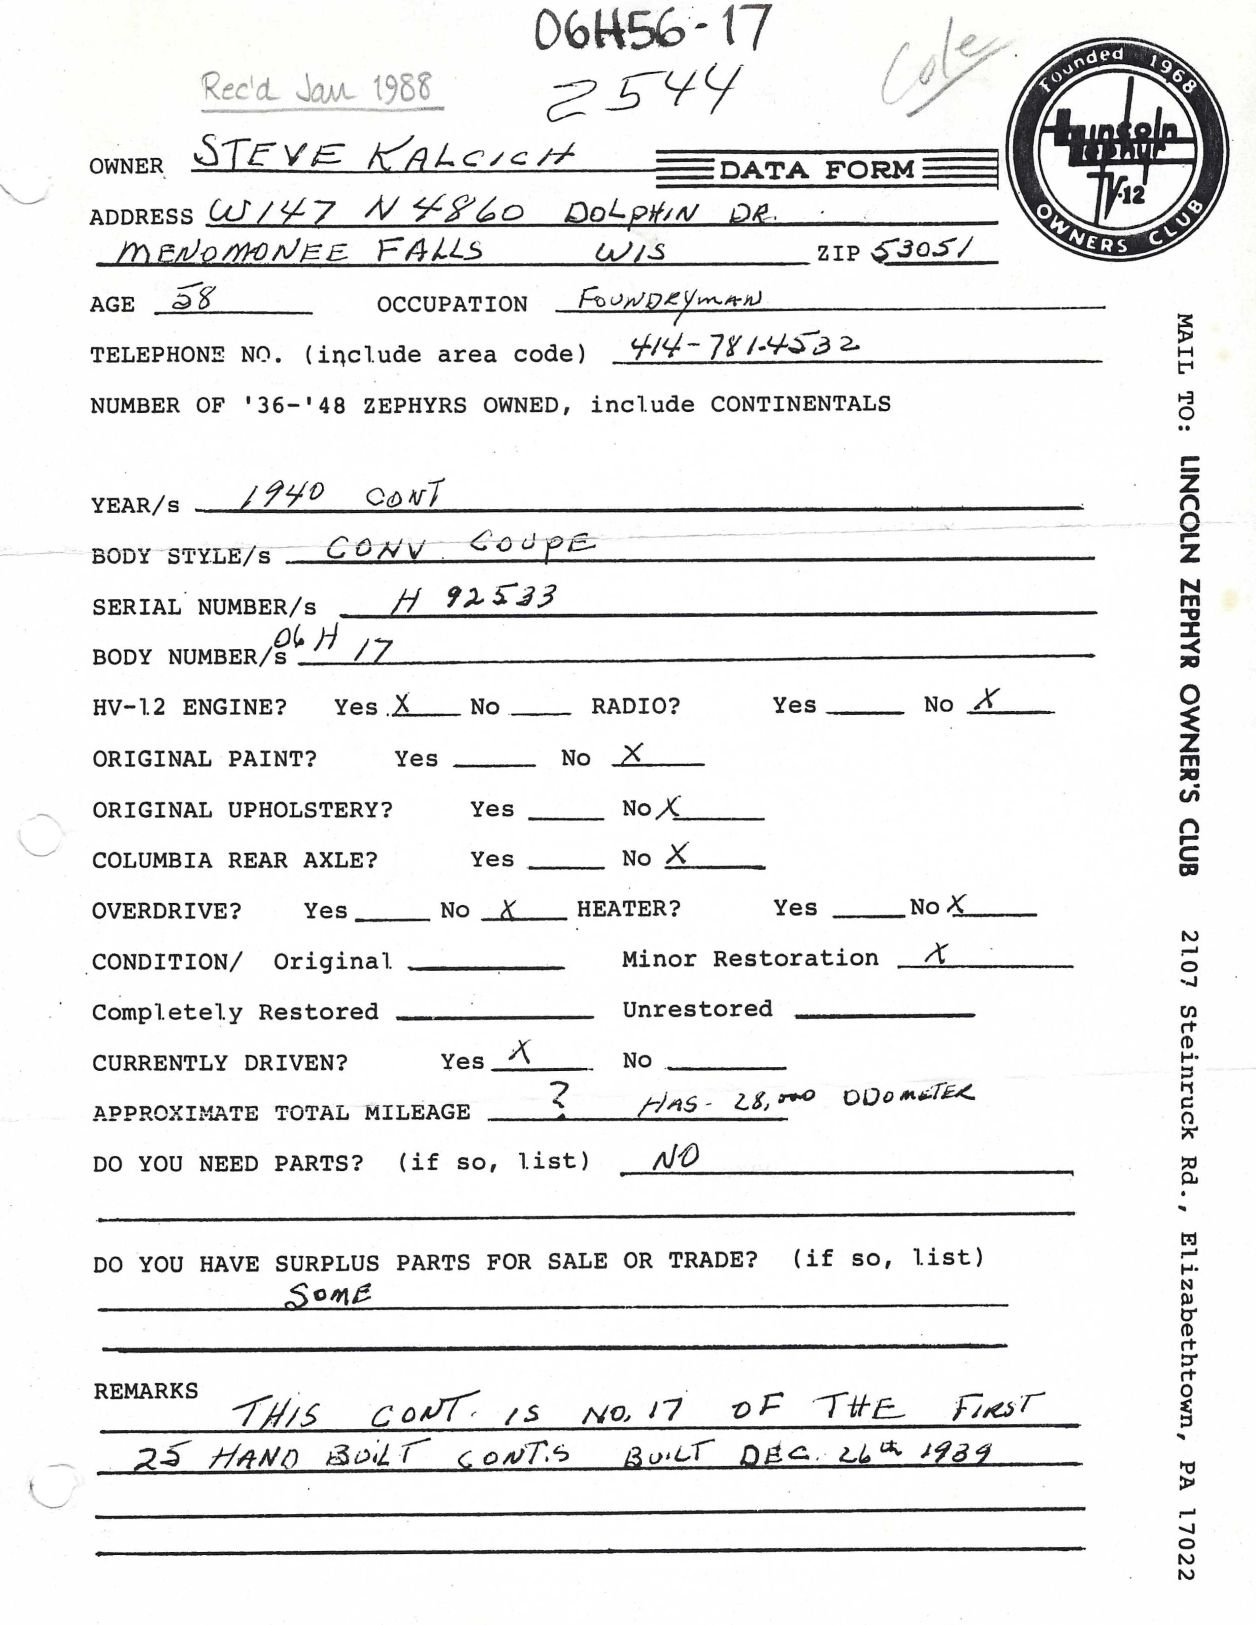 06H56-17
Rec'd Jan 1988
2544
Cole
Founded 1968
Lincoln
Zephyr
V-12
OWNERS CLUB
OWNER STEVE KALCICH
DATA FORM
ADDRESS W147 N4860 DOLPHIN DR.
MENOMONEE FALLS WIS ZIP 53051
AGE 58 OCCUPATION FOUNDRYMAN
TELEPHONE NO. (include area code) 414-781-4532
NUMBER OF '36-'48 ZEPHYRS OWNED, include CONTINENTALS
YEAR/s 1940 CONT
BODY STYLE/s CONV COUPE
SERIAL NUMBER/s H 92533
BODY NUMBER/s 06H 17
HV-12 ENGINE? Yes X No RADIO? Yes No X
ORIGINAL PAINT? Yes No X
ORIGINAL UPHOLSTERY? Yes No X
COLUMBIA REAR AXLE? Yes No X
OVERDRIVE? Yes No X HEATER? Yes No X
CONDITION/ Original Minor Restoration X
Completely Restored Unrestored
CURRENTLY DRIVEN? Yes X No
APPROXIMATE TOTAL MILEAGE ? HAS - 28,000 ODOMETER
DO YOU NEED PARTS? (if so, list) NO
DO YOU HAVE SURPLUS PARTS FOR SALE OR TRADE? (if so, list)
SOME
REMARKS
THIS CONT. IS NO. 17 OF THE FIRST
25 HAND BUILT CONT.S BUILT DEC. 26th 1939
MAIL TO: LINCOLN ZEPHYR OWNER'S CLUB 2107 Steinruck Rd., Elizabethtown, PA 17022